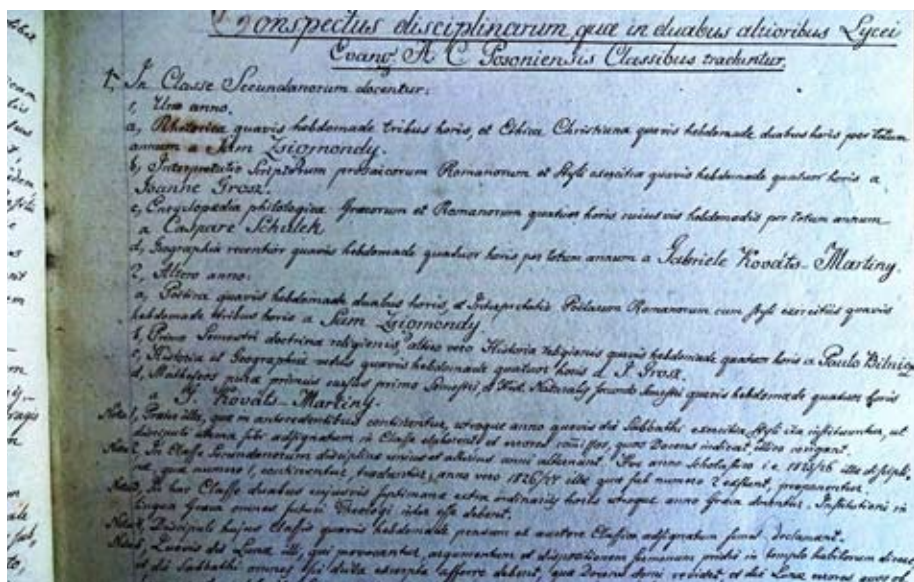 Conspectus disciplinarum, quae in duabus altioribus Lycei
Evang. A C Posoniensis Classibus traduntur.
I, In Classe Secundanorum docentur:
1, Uno anno.
a, Rhetorica quavis hebdomade tribus horis, et Ethica Christiana quavis hebdomade duabus horis per totum
annum a Sam Zsigmondy.
b, Interpretatio Scriptorum prosaicorum Romanorum et styli exercitia quavis hebdomade quatuor horis a
Joanne Grosz.
c, Encyclopaedia philologica Graecorum et Romanorum quatuor horis cuiusvis hebdomadis per totum annum
a Caspare Schulek
d, Geographia recentior quavis hebdomade quatuor horis per totum annum a Gabriele Kováts-Martiny.
2, Altero anno:
a, Poetica quavis hebdomade duabus horis, et Interpretatio Poetarum Romanorum cum styli exercitiis quavis
hebdomade tribus horis a Sam Zsigmondy
b, Primo Semestri doctrina religionis, altero vero Historia religionis quavis hebdomade quatuor horis a Paulo Bilnicza
c, Historia et Geographia vetus quavis hebdomade quatuor horis a J. Grosz.
d, Matheseos pura primus cursus primo Semestri, et Hist. Naturalis secundo Semestri quavis hebdomade quatuor horis
a G. Kováts-Martiny.
Nota 1, Praeter illa, quae in antecedentibus continentur, utroque anno quavis die Sabbathi exercitia styli ita instituuntur, ut
discipuli thema sibi adsignatum in Classe elaborent et errores commissos, quos Docens indicat, illico corrigant.
Nota 2, In Classe Secundanorum disciplinae unius et alterius anni alternant. Hoc anno scholastico i. e. 1825/26 illae disciplinae,
quae numero 1, continentur, traduntur, anno vero 1826/27 illae quae sub numero 2 exstant, proponentur.
Nota 3, In hac Classe duabus cujusvis septimanae extra ordinariis horis utroque anno Graeca docentur. Institutioni in
lingua Graeca omnes futuri Theologi interesse debent.
Nota 4, Discipuli hujus classis quavis hebdomade pensum ex auctore Classico adsignatum simul declamant.
Nota 5, Quovis die Lunae illi, qui provocantur, argumentum et dispositionem sermonum pridie in templo habitorum
et die Sabbathi omnes sua dicta excerpta afferre debent, quae Docens domi revidet, et die Lunae